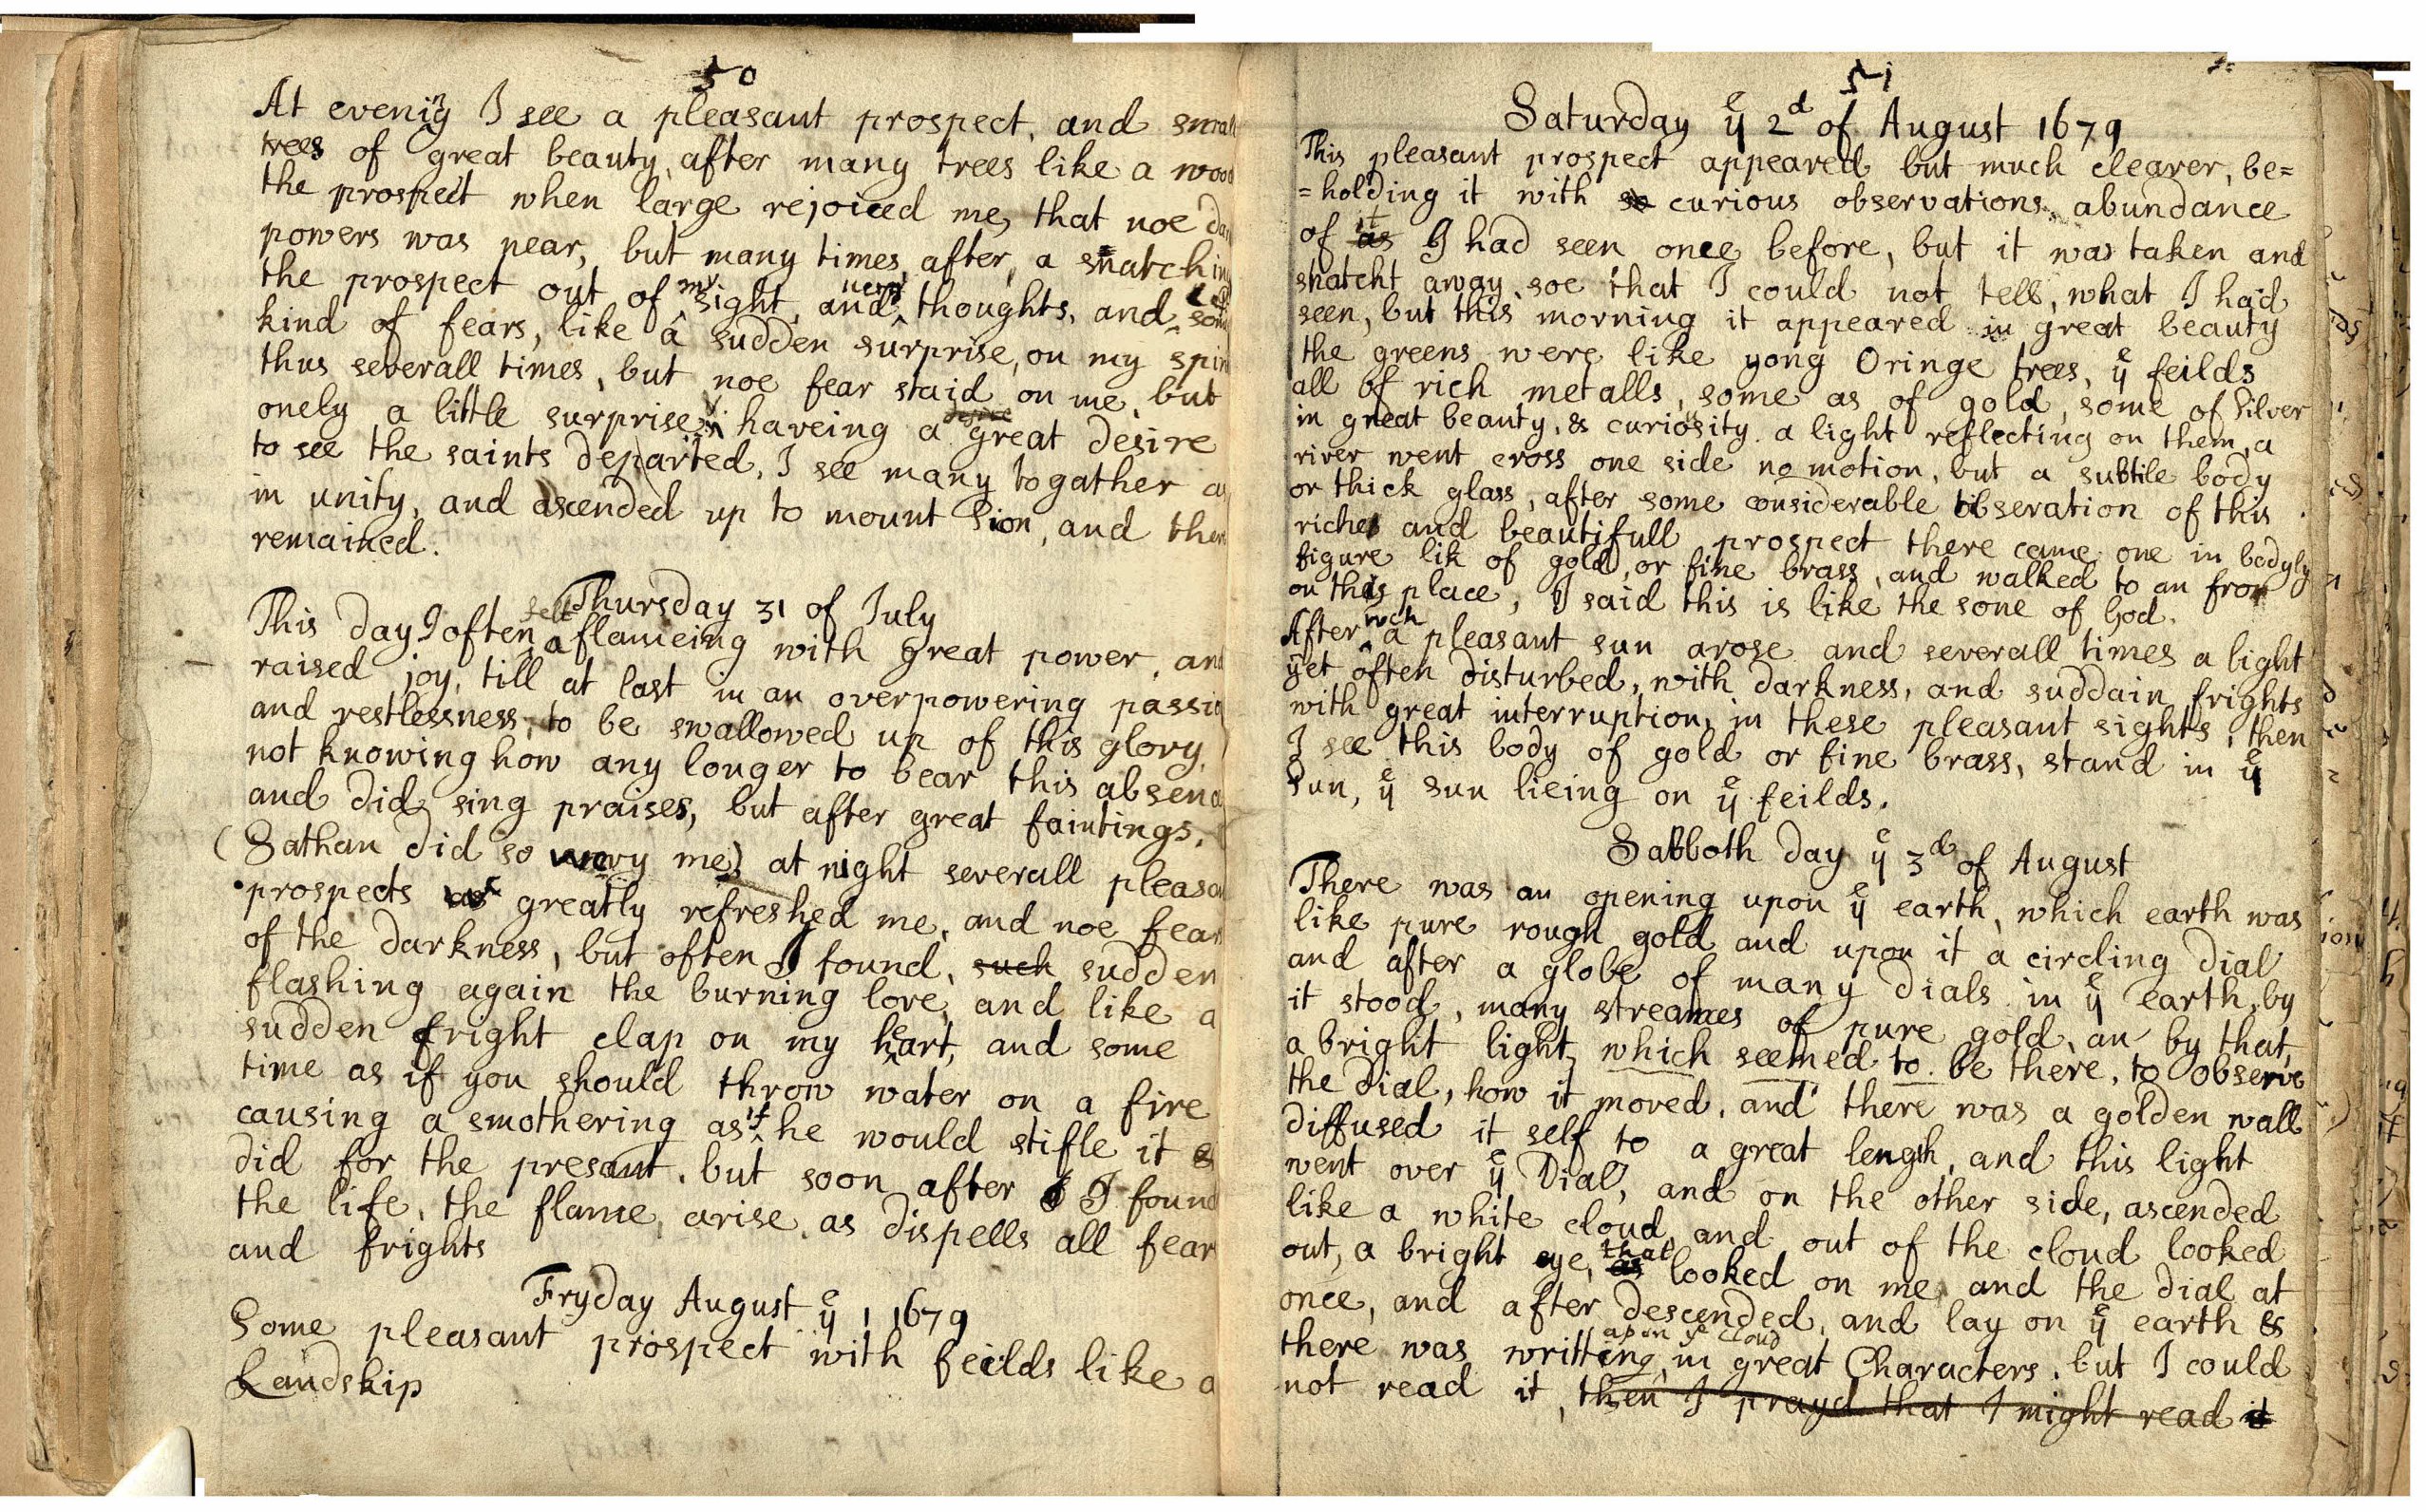 50
At evening I see a pleasant prospect, and small
trees of great beauty, after many trees like a wood
the prospect when large rejoiced me, that noe
powers was near, but many times, after, a snatching
the prospect out of my sight, and thoughts, and
kind of fears, like a sudden surprise, on my
thus severall times, but noe fear staid on me, but
onely a little surprise, haveing a great desire
to see the saints departed, I see many togather
in unity, and ascended up to mount Sion, and
remained.
Thursday 31 of July
This day I often felt a flameing with great power, and
raised joy, till at last in an overpowering
and restlessness, to be swallowed up of this glory,
not knowing how any longer to bear this
and did sing praises, but after great faintings,
(Sathan did so me) at night severall
prospects greatly refreshed me, and noe
of the darkness, but often I found, such sudden
flashing again the burning love, and like a
sudden fright clap on my heart, and some
time as if you should throw water on a fire
causing a smothering as if he would stifle it
did for the present, but soon after I found
the life, the flame, arise, as dispells all fear
and frights
Fryday August yͤ 1 1679
Some pleasant prospect with feilds like a
Landskip
51
Saturday yͤ 2ᵈ of August 1679
This pleasant prospect appeared but much clearer, be=
=holding it with so curious observations, abundance
of as it I had seen once before, but it was taken and
snatcht away, soe that I could not tell, what I had
seen, but this morning it appeared in great beauty
the greens were like yong Oringe trees, yͤ feilds
all of rich metalls, some as of gold, some of Silver
in great beauty, & curiosity, a light reflecting on them, a
river went cross one side no motion, but a subtile body
or thick glass, after some considerable obseration of this
riches and beautifull prospect there came one in bodyly
figure lik of gold, or fine brass, and walked to an from
on this place, I said this is like the sone of God.
After wch a pleasant sun arose and severall times a light
yet often disturbed, with darkness, and suddain frights
with great interruption, in these pleasant sights, then
I see this body of gold or fine brass, stand in yͤ
Sun, yͤ sun lieing on yͤ feilds.
Sabboth day yͤ 3ᵈ of August
There was an opening upon yͤ earth, which earth was
like pure rough gold and upon it a circling dial
and after a globe of many dials in yͤ earth, by
it stood, many streames of pure gold, an by that,
a bright light, which seemed to be there, to observe
the dial, how it moved, and there was a golden wall
diffused it self to a great length, and this light
went over yͤ Dial, and on the other side, ascended
like a white cloud, and out of the cloud looked
out, a bright eye, as that looked on me, and the dial at
once, and after descended, and lay on yͤ earth &
there was writting upon yͤ cloud in great Characters, but I could
not read it, then I prayd that I might read it